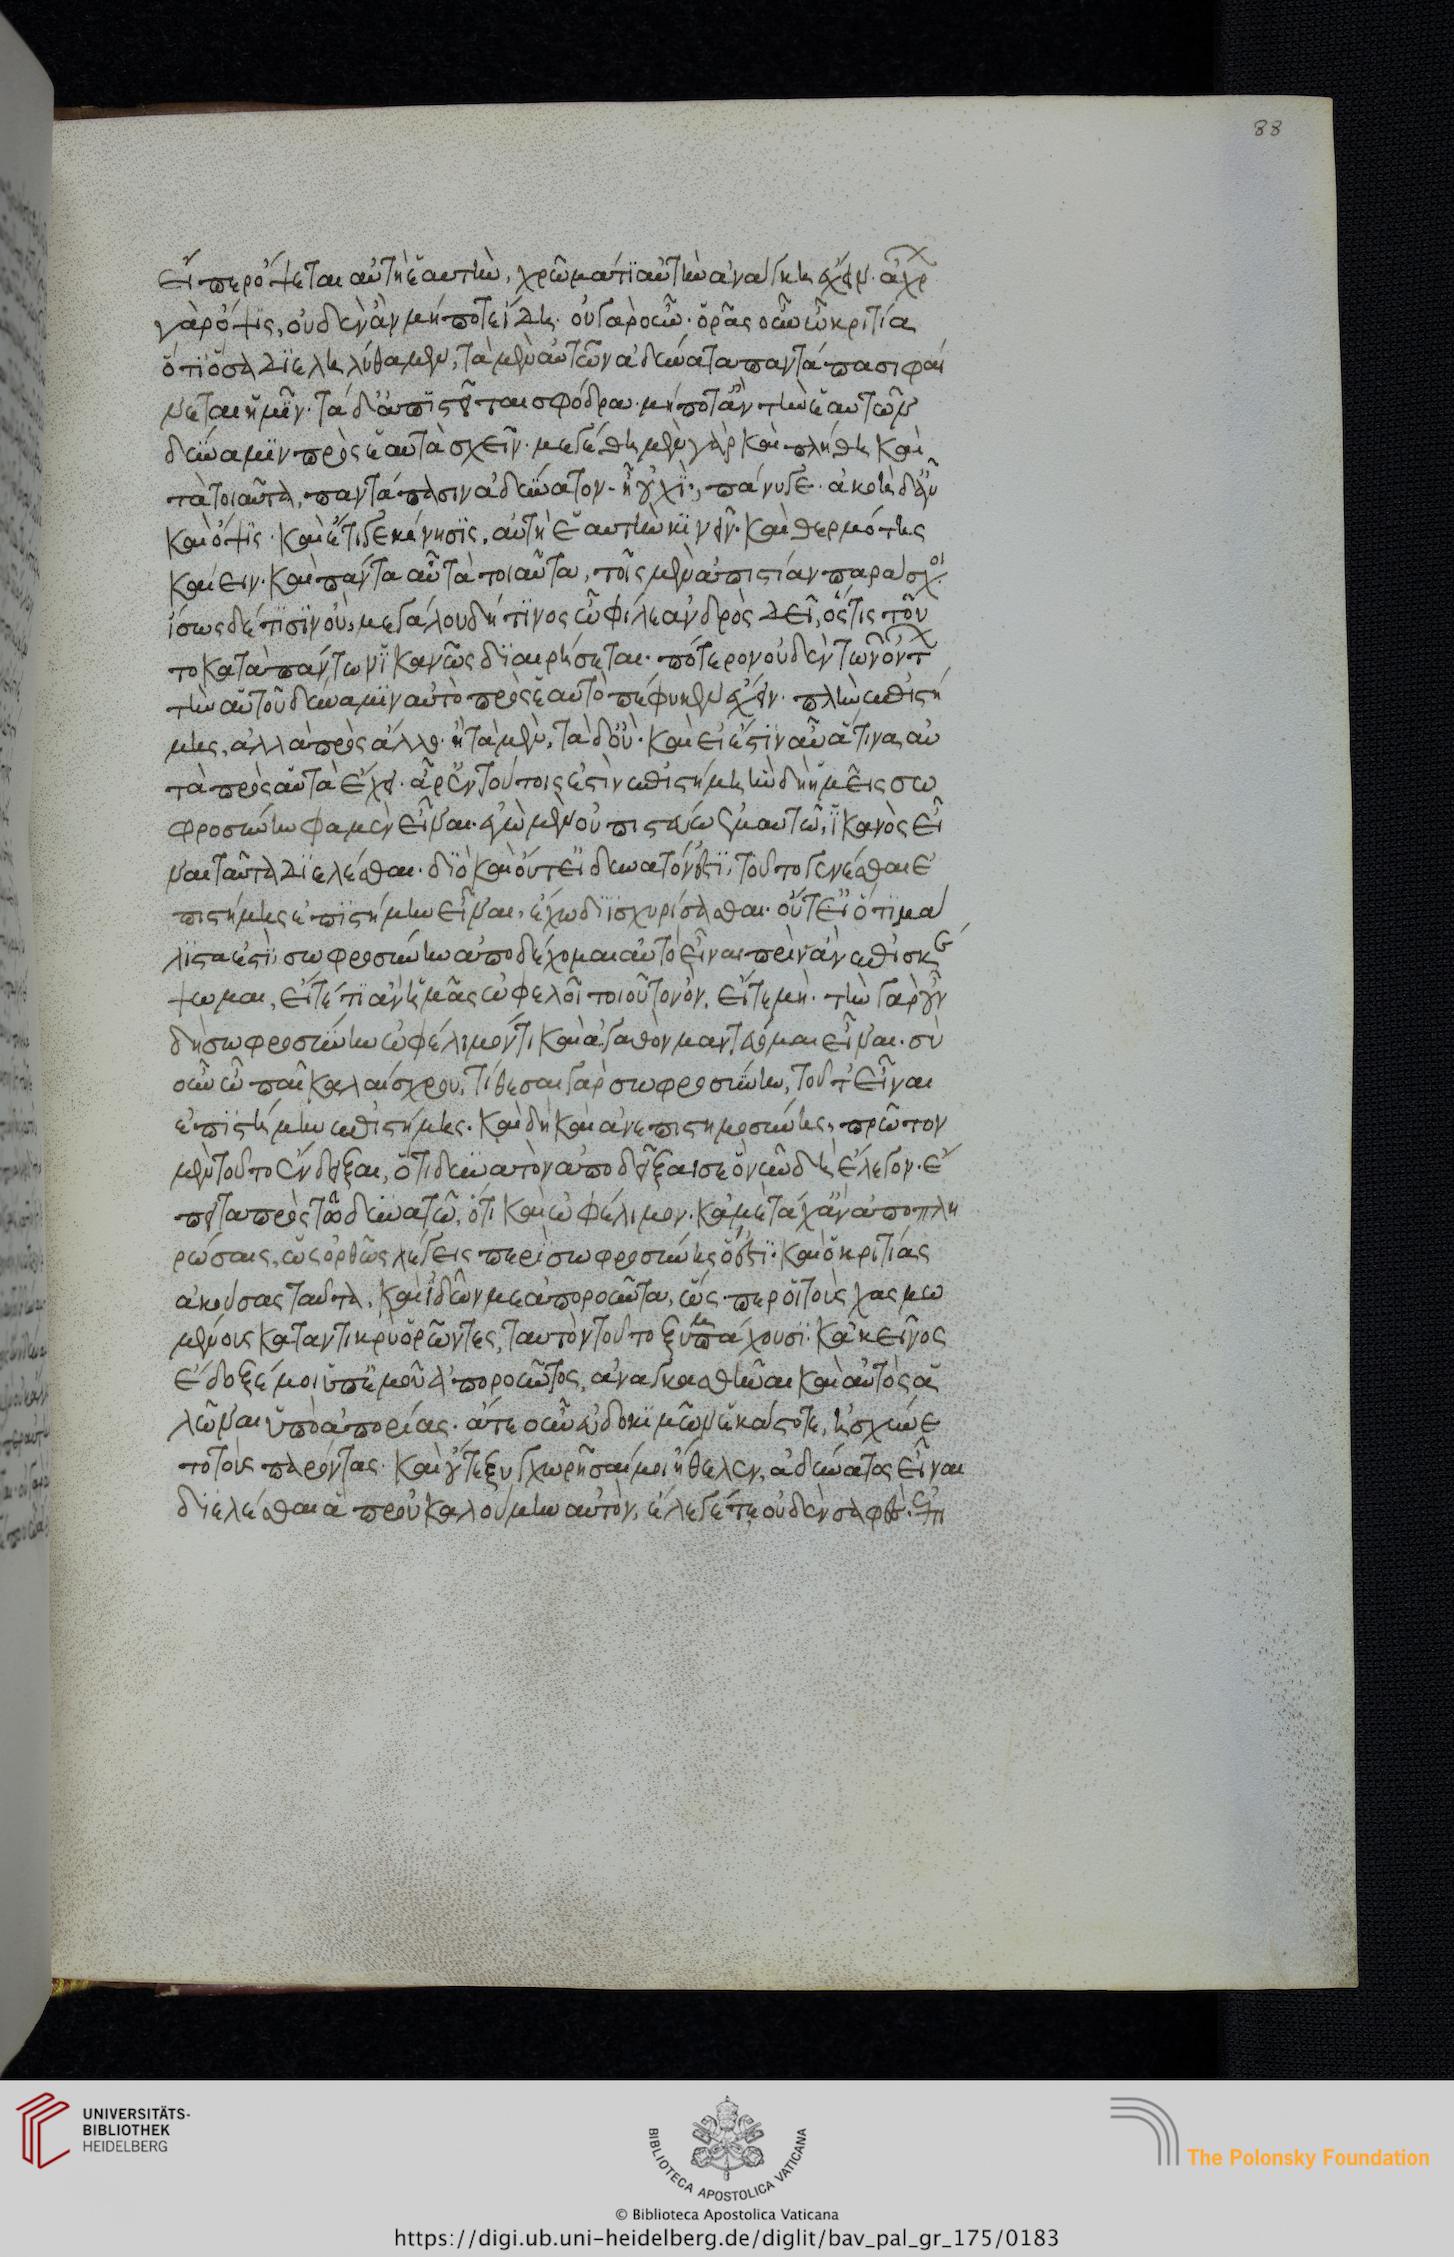 εἴπερ ὄψεται αὐτὴ ἑαυτὴν, χρῶμά τι αὐτὴν ἀνάγκη ἔχειν. ἄχρ
γὰρ ὄψις, οὐδὲν ἂν μή ποτε ἴδη. οὐ γὰρ οὖν. ὁρᾶς οὖν ὦ κριτία
ὅτι ὅσα διεληλύθαμεν, τὰ μὲν αὐτῶν ἀδύνατα παντάπασι φαί
νεται ἡμῖν. τὰ δ' ἀπιστεῖται σφόδρα. μή ποτ' ἂν τὴν ἑαυτῶν
δύναμιν πρὸς ἑαυτὰ σχεῖν. μεγέθη μὲν γὰρ καὶ πλήθη καὶ
τὰ τοιαῦτα, παντάπασιν ἀδύνατον. ἢ οὐχί; πάνυ γε. ἀκοὴ δ' αὖ
καὶ ὄψις. καὶ ἔτι γε κίνησις, αὐτὴ ἑαυτὴν κινεῖν. καὶ θερμότης
καίειν. καὶ πάντα αὖ τὰ τοιαῦτα, τοῖς μὲν ἀπιστίαν παράσχοι.
ἴσως δέ τισιν οὔ, μεγάλου δή τινος ὦ φίλε ἀνδρὸς δεῖ, ὅστις τοῦ
το κατὰ πάντων ἱκανῶς διαιρήσεται. πότερον οὐδὲν τῶν ὄντ
τὴν αὑτοῦ δύναμιν αὐτὸ πρὸς ἑαυτὸ πέφυκεν ἔχειν. πλὴν ἐπιστή
μης, ἀλλὰ πρὸς ἄλλο. ἢ τὰ μὲν, τὰ δ' οὔ. καὶ εἰ ἔστιν αὖ ἅτινα αὐ
τὰ πρὸς αὑτὰ ἔχει. ἆρ' ἐν τούτοις ἐστὶν ἐπιστήμη ἣν δὴ ἡμεῖς σω
φροσύνην φαμὲν εἶναι. ἐγὼ μὲν οὐ πιστεύω ἐμαυτῶ, ἱκανὸς εἶ
ναι ταῦτα διελέσθαι. διὸ καὶ οὔτ' εἰ δυνατόν ἐστι, τοῦτο γενέσθαι ἐ
πιστήμης ἐπιστήμην εἶναι, ἔχω διισχυρίσασθαι. οὔτ' εἰ ὅτι μά
λιστα ἐστὶ, σωφροσύνην ἀποδέχομαι αὐτὸ εἶναι πρὶν ἂν ἐπισκέ
ψωμαι, εἴτέ τι ἂν ἡμᾶς ὠφελοῖ τοιοῦτον ὄν, εἴτε μή. τὴν γὰρ οὖν
δὴ σωφροσύνην ὠφέλιμόν τι καὶ ἀγαθὸν μαντεύομαι εἶναι. σὺ
οὖν ὦ παῖ καλαίσχρου, τίθεσαι γὰρ σωφροσύνην, τοῦτ' εἶναι
ἐπιστήμην ἐπιστήμης. καὶ δὴ καὶ ἀνεπιστημοσύνης, πρῶτον
μὲν τοῦτο ἔνδειξαι, ὅτι δυνατὸν ἀποδεῖξαι σε ὃ νῦν δὴ ἔλεγον. ἔ
πειτα πρὸς τῶ δυνατῶ, ὅτι καὶ ὠφέλιμον. κἀμὲ τάχ' ἂν ἀποπλη
ρώσαις, ὡς ὀρθῶς λέγεις περὶ σωφροσύνης ὅ ἐστι. καὶ ὁ κριτίας
ἀκούσας ταῦτα, καὶ ἰδών με ἀποροῦντα, ὥς περ οἱ τοὺς χασμω
μένους καταντικρὺ ὁρῶντες, ταυτὸν τοῦτο ξυμπάσχουσι. κἀκεῖνος
ἔδοξέ μοι ὑπ' ἐμοῦ ἀποροῦντος, ἀναγκασθῆναι καὶ αὐτὸς ἁ
λῶναι ὑπὸ ἀπορίας. ἅτε οὖν εὐδοκιμῶν ἑκάστοτε, ἠσχύνε
το τοὺς παρόντας. καὶ οὔτε ξυγχωρῆσαί μοι ἤθελεν, ἀδύνατος εἶναι
διελέσθαι ἃ προὐκαλούμην αὐτόν, ἔλεγέ τε οὐδὲν σαφὲς. ἐπι
88
UNIVERSITÄTS-
BIBLIOTHEK
HEIDELBERG
BIBLIOTECA APOSTOLICA VATICANA
The Polonsky Foundation
© Biblioteca Apostolica Vaticana
https://digi.ub.uni-heidelberg.de/diglit/bav_pal_gr_175/0183